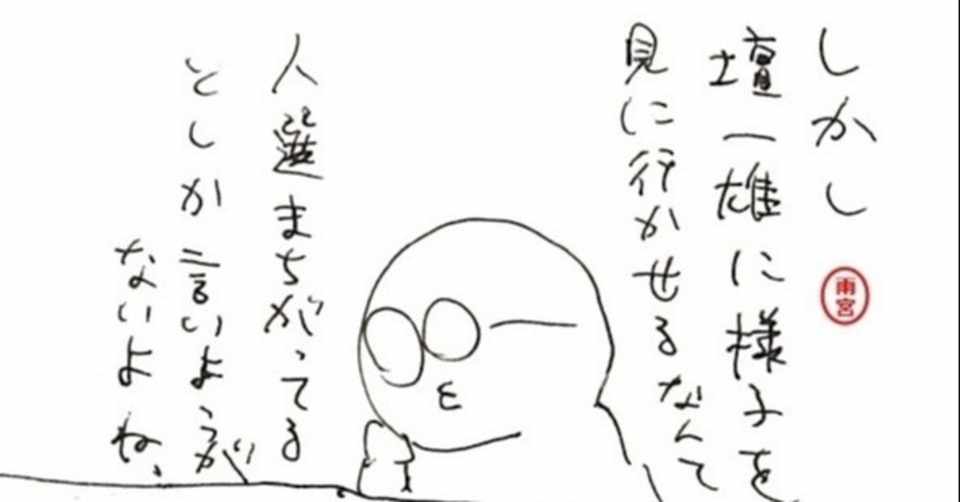 しかし
壇一雄に様子を
見に行かせるなんて
人選まちがってる
としか言いようが
ないよね、
雨宮